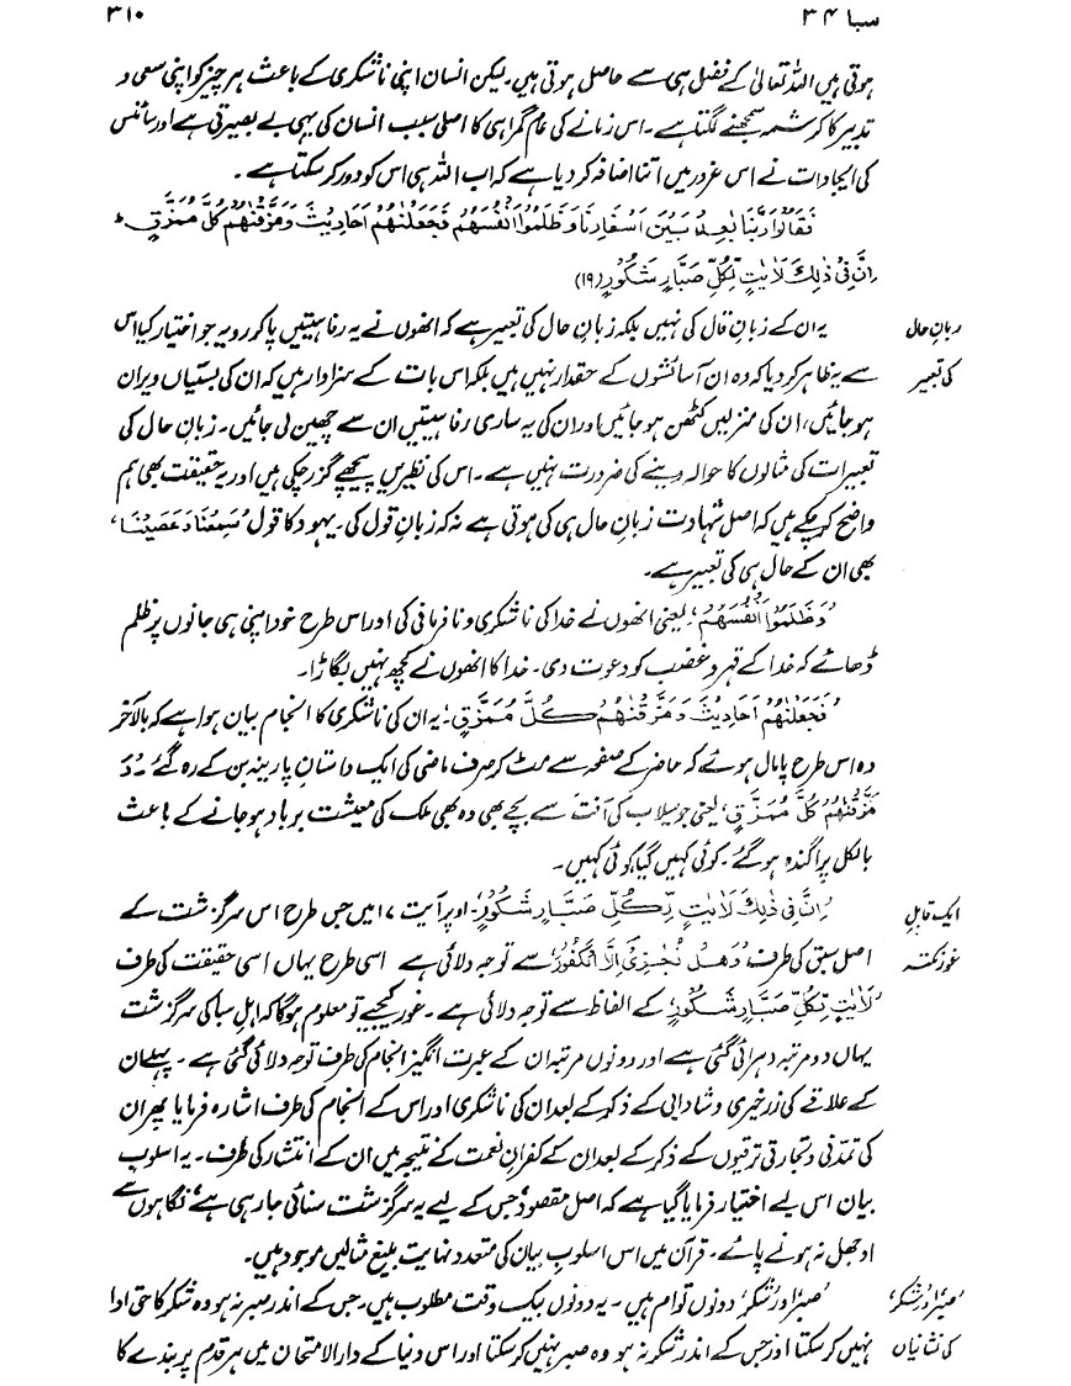 سبا ۳۴
۳۱۰
ہوتی ہیں اللہ تعالیٰ کے فضل ہی سے حاصل ہوتی ہیں۔ لیکن انسان اپنی ناشکری کے باعث ہر چیز کو اپنی سعی و
تدبیر کا کرشمہ سمجھنے لگتا ہے۔ اس زمانے کی عام گمراہی کا اصلی سبب انسان کی یہی بے بصیرتی ہے اور سائنس
کی ایجادات نے اس غرور میں اتنا اضافہ کر دیا ہے کہ اب اللہ ہی اس کو دور کر سکتا ہے۔
فَقَالُوْا رَبَّنَا بٰعِدْ بَيْنَ اَسْفَارِنَا وَظَلَمُوْٓا اَنْفُسَهُمْ فَجَعَلْنٰهُمْ اَحَادِيْثَ وَمَزَّقْنٰهُمْ كُلَّ مُمَزَّقٍ ؕ
اِنَّ فِيْ ذٰلِكَ لَاٰيٰتٍ لِّكُلِّ صَبَّارٍ شَكُوْرٍ (۱۹)
زبان حال
یہ ان کے زبانِ قال کی نہیں بلکہ زبانِ حال کی تعبیر ہے کہ انھوں نے یہ رفاہیتیں پا کر رویہ جو اختیار کیا اس
کی تعبیر
سے یہ ظاہر کر دیا کہ وہ ان آسائشوں کے حقدار نہیں ہیں بلکہ اس بات کے سزاوار ہیں کہ ان کی بستیاں ویران
ہو جائیں، ان کی منزلیں کٹھن ہو جائیں اور ان کی یہ ساری رفاہیتیں ان سے چھین لی جائیں۔ زبانِ حال کی
تعبیرات کی مثالوں کا حوالہ دینے کی ضرورت نہیں ہے۔ اس کی نظیریں پیچھے گزر چکی ہیں اور یہ حقیقت بھی ہم
واضح کر چکے ہیں کہ اصل شہادت زبانِ حال ہی کی ہوتی ہے نہ کہ زبانِ قول کی۔ یہود کا قول ’سَمِعْنَا وَعَصَيْنَا‘
بھی ان کے حال ہی کی تعبیر ہے۔
’وَظَلَمُوْٓا اَنْفُسَهُمْ‘ یعنی انھوں نے خدا کی ناشکری و نافرمانی کی اور اس طرح خود اپنی ہی جانوں پر ظلم
ڈھائے کہ خدا کے قہر و غضب کو دعوت دی۔ خدا کا انھوں نے کچھ نہیں بگاڑا۔
’فَجَعَلْنٰهُمْ اَحَادِيْثَ وَمَزَّقْنٰهُمْ كُلَّ مُمَزَّقٍ‘۔ یہ ان کی ناشکری کا انجام بیان ہوا ہے کہ بالآخر
وہ اس طرح پامال ہوئے کہ حاضر کے صفحہ سے مٹ کر صرف ماضی کی ایک داستانِ پارینہ بن کے رہ گئے۔ ’وَ
مَزَّقْنٰهُمْ كُلَّ مُمَزَّقٍ‘ یعنی جو سیلاب کی آفت سے بچے بھی وہ بھی ملک کی معیشت برباد ہو جانے کے باعث
بالکل پراگندہ ہو گئے۔ کوئی کہیں گیا کوئی کہیں۔
ایک قابلِ
’اِنَّ فِيْ ذٰلِكَ لَاٰيٰتٍ لِّكُلِّ صَبَّارٍ شَكُوْرٍ‘۔ اوپر آیت ۱۷ میں جس طرح اس سرگزشت کے
غور نکتہ
اصل سبق کی طرف ’وَهَلْ نُجٰزِيْٓ اِلَّا الْكَفُوْرَ‘ سے توجہ دلائی ہے اسی طرح یہاں اسی حقیقت کی طرف
’لَاٰيٰتٍ لِّكُلِّ صَبَّارٍ شَكُوْرٍ‘ کے الفاظ سے توجہ دلائی ہے۔ غور کیجیے تو معلوم ہوگا کہ اہلِ سبا کی سرگزشت
یہاں دو مرتبہ دہرائی گئی ہے اور دونوں مرتبہ ان کے عبرت انگیز انجام کی طرف توجہ دلائی گئی ہے۔ پہلے ان
کے علاقے کی زرخیزی و شادابی کے ذکر کے بعد ان کی ناشکری اور اس کے انجام کی طرف اشارہ فرمایا پھر ان
کی تمدنی و تجارتی ترقیوں کے ذکر کے بعد ان کے کفرانِ نعمت کے نتیجہ میں ان کے انتشار کی طرف۔ یہ اسلوب
بیان اس لیے اختیار فرمایا گیا ہے کہ اصل مقصود، جس کے لیے یہ سرگزشت سنائی جا رہی ہے، نگاہوں سے
اوجھل نہ ہونے پائے۔ قرآن میں اس اسلوبِ بیان کی متعدد نہایت بلیغ مثالیں موجود ہیں۔
’صبر‘ اور ’شکر‘
’صبر‘ اور ’شکر‘ دونوں توام ہیں۔ یہ دونوں بیک وقت مطلوب ہیں۔ جس کے اندر صبر نہ ہو وہ شکر کا حق ادا
کی نشانیاں
نہیں کر سکتا اور جس کے اندر شکر نہ ہو وہ صبر نہیں کر سکتا اور اس دنیا کے دارالامتحان میں ہر قدم پر بندے کا